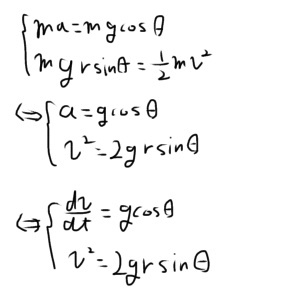 { ma = mg cos θ
{ mgr sin θ = ½ mv²
⇔ { a = g cos θ
{ v² = 2gr sin θ
⇔ { dv/dt = g cos θ
{ v² = 2gr sin θ